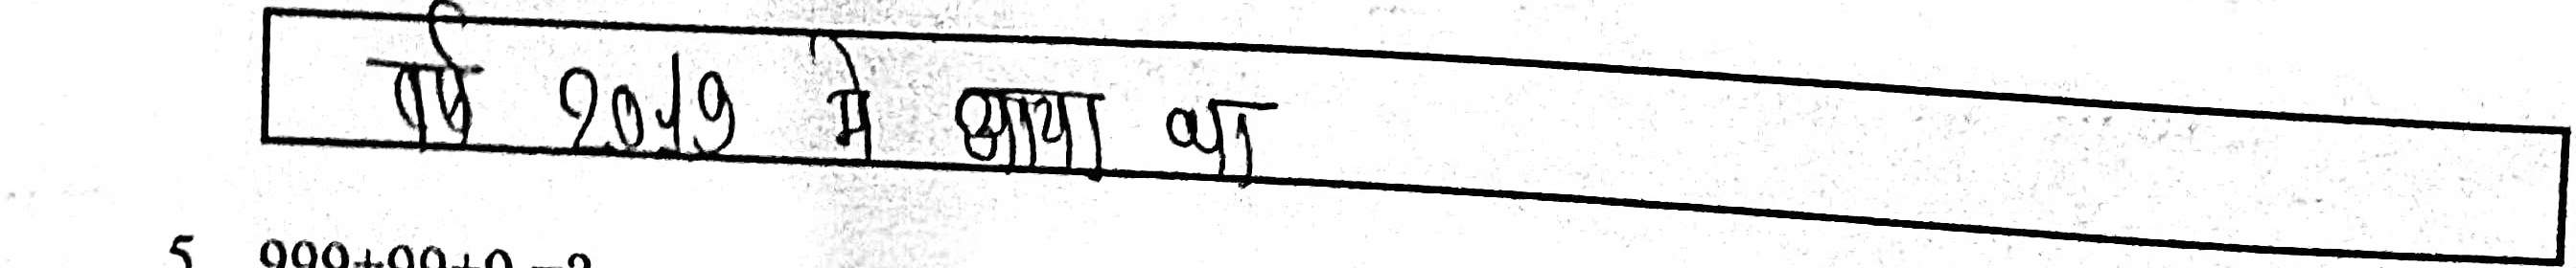 वर्ष 2019 मे आया था
5 999+99+9 =?